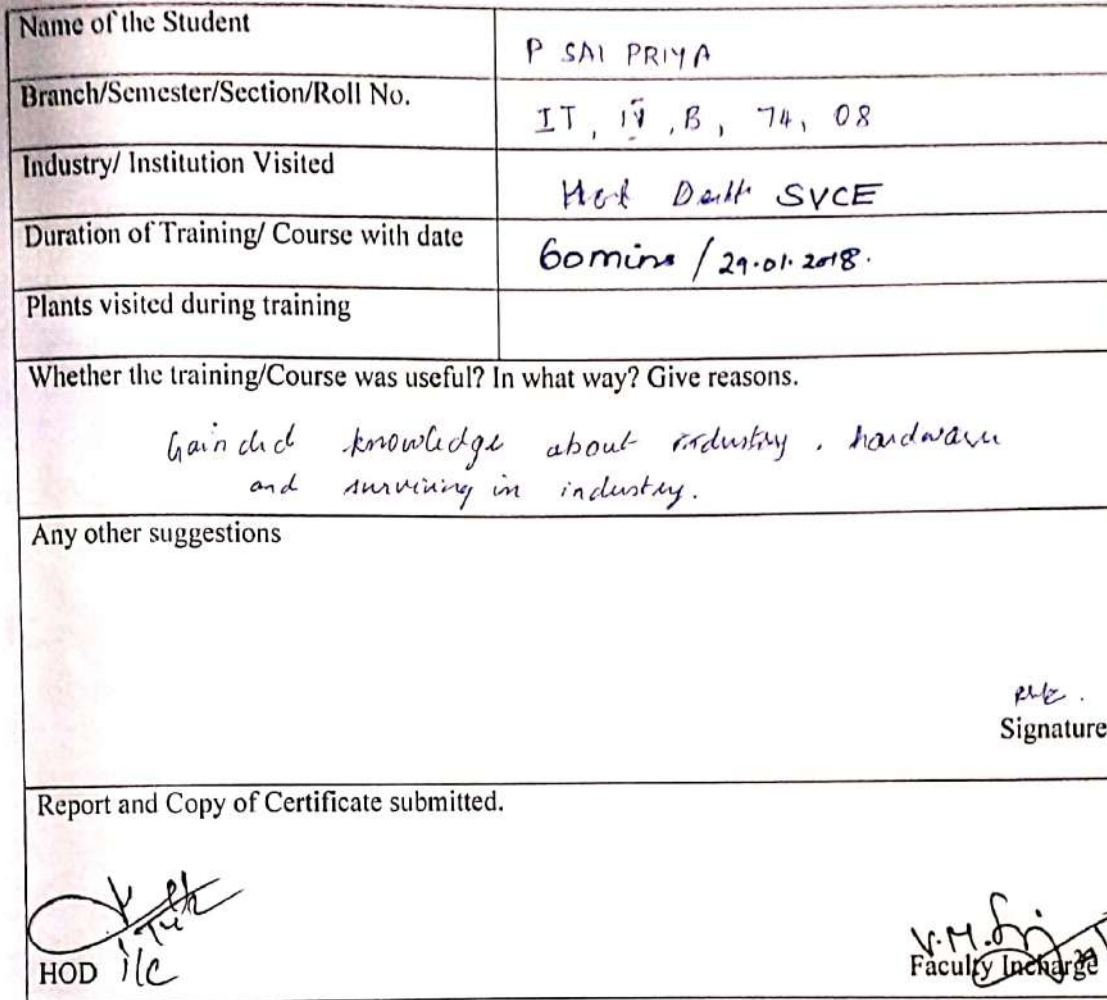 Name of the Student
P SAI PRIYA
Branch/Semester/Section/Roll No.
IT, IV, B, 74, 08
Industry/ Institution Visited
SVCE
Duration of Training/ Course with date
60mins / 29.01.2018.
Plants visited during training
Whether the training/Course was useful? In what way? Give reasons.
knowledge about industry, hardware
and surviving in industry.
Any other suggestions
Signature
Report and Copy of Certificate submitted.
V.M.
HOD i/c
Faculty Incharge